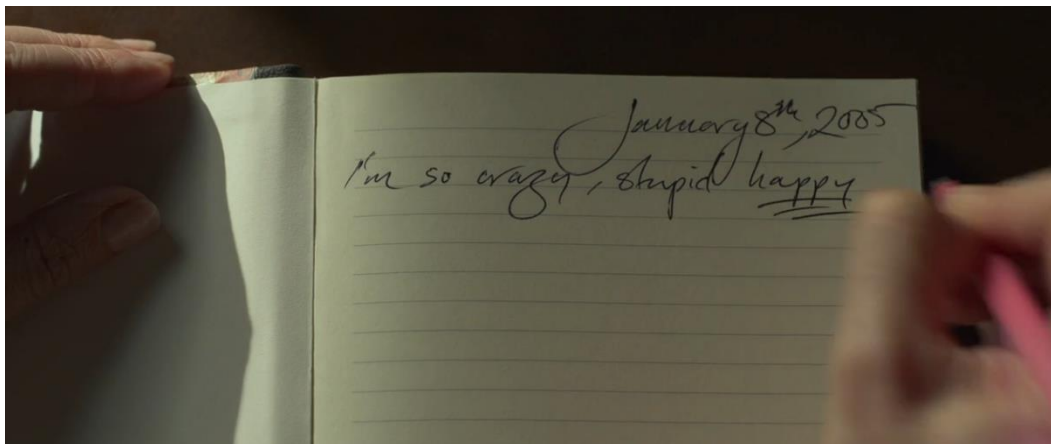 January 8th, 2005
I'm so crazy, stupid happy